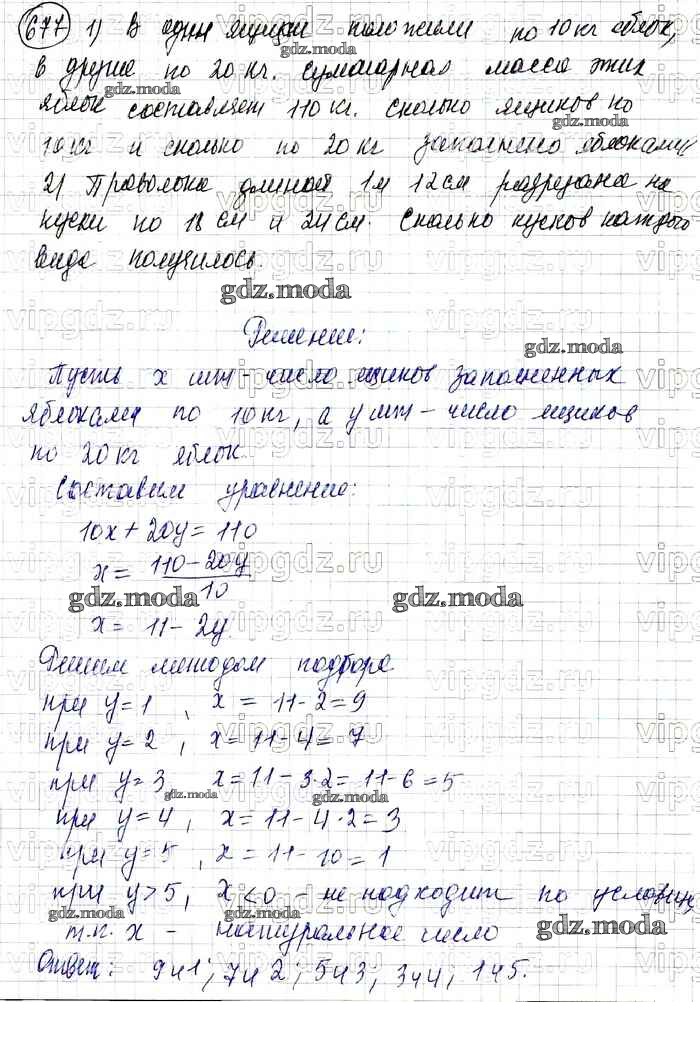 677 1) В одни ящики положили по 10 кг яблок,
в другие по 20 кг. суммарная масса этих
яблок составляет 110 кг. сколько ящиков по
10 кг и сколько по 20 кг заполнено яблоками
2) Проволока длиной 1м 12см разрезана на
куски по 18 см и 24 см. Сколько кусков каждого
вида получилось.
Решение:
Пусть x шт - число ящиков заполненных
яблоками по 10 кг, а y шт - число ящиков
по 20 кг яблок.
Составим уравнение:
10x + 20y = 110
x = (110 - 20y) / 10
x = 11 - 2y
Решим методом подбора
при y = 1, x = 11 - 2 = 9
при y = 2, x = 11 - 4 = 7
при y = 3, x = 11 - 3·2 = 11 - 6 = 5
при y = 4, x = 11 - 4·2 = 3
при y = 5, x = 11 - 10 = 1
при y > 5, x < 0 - не подходит по условию,
т.к. x - натуральное число
Ответ: 9 и 1; 7 и 2; 5 и 3; 3 и 4; 1 и 5.
gdz.moda
vipgdz.ru